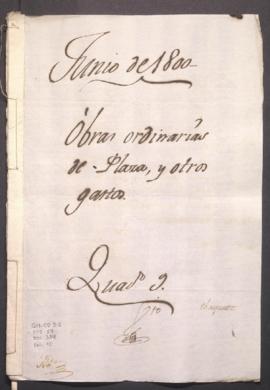 Junio de 1800
Obras ordinarias
de Plaza, y otros
gastos.
Quad.º 9.